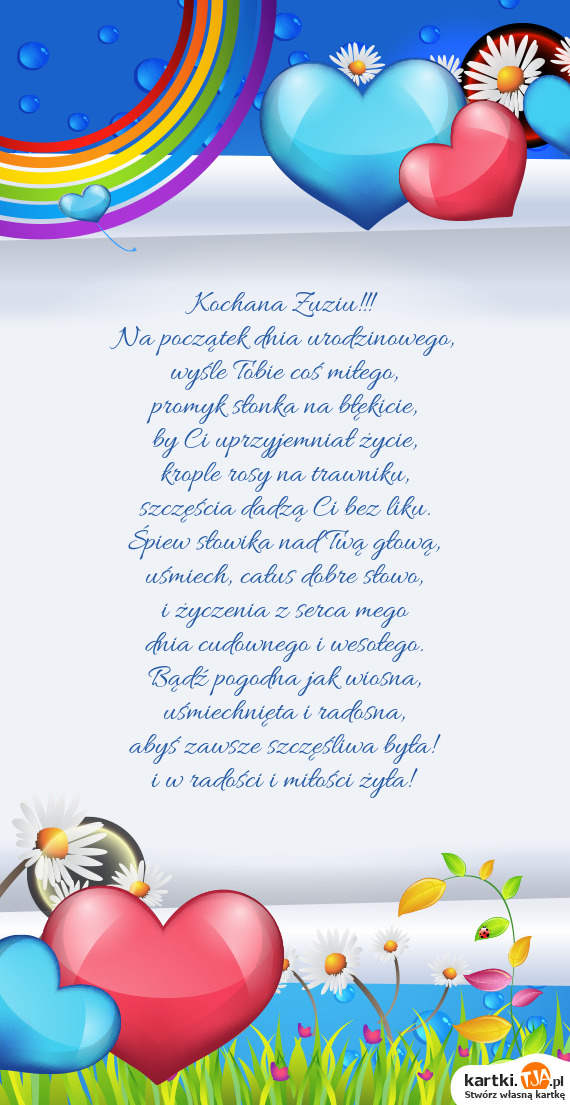 Kochana Zuziu!!!
Na początek dnia urodzinowego,
wyśle Tobie coś miłego,
promyk słonka na błękicie,
by Ci uprzyjemniał życie,
krople rosy na trawniku,
szczęścia dadzą Ci bez liku.
Śpiew słowika nad Twą głową,
uśmiech, całus dobre słowo,
i życzenia z serca mego
dnia cudownego i wesołego.
Bądź pogodna jak wiosna,
uśmiechnięta i radosna,
abyś zawsze szczęśliwa była!
i w radości i miłości żyła!
kartki.TJA.pl
Stwórz własną kartkę